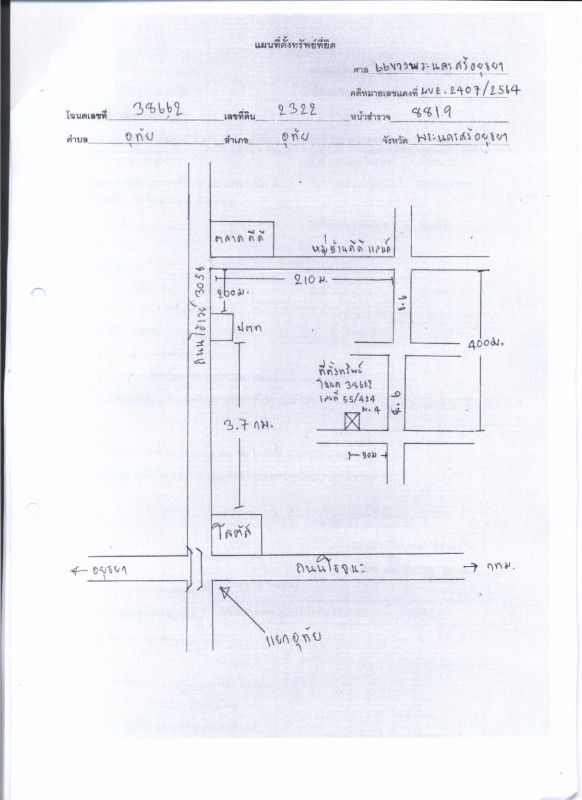 แผนที่ตั้งทรัพย์ที่ยึด
ศาล แขวงพระนครศรีอยุธยา
คดีหมายเลขแดงที่ ผบE.2407/2564
โฉนดเลขที่ 38662 เลขที่ดิน 2322 หน้าสำรวจ 8819
ตำบล อุทัย อำเภอ อุทัย จังหวัด พระนครศรีอยุธยา
ตลาด ดีดี
หมู่บ้านดีดี แลนด์
210 ม.
200 ม.
ถนน 3056
ปตท
ซ.6
400 ม.
ที่ตั้งทรัพย์
โฉนด 38662
เลขที่ 55/434
ม.4
ซ.6
3.7 กม.
20ม
โลตัส
อยุธยา
ถนนโรจนะ
กทม.
แยกอุทัย